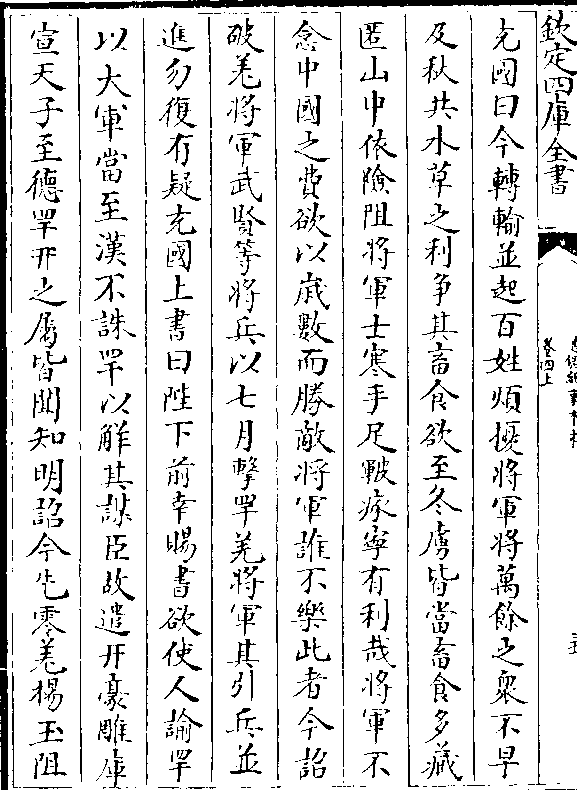 欽定四庫全書
卷四上
充國曰今轉輸並起百姓煩擾將軍將萬餘之衆不早
及秋共水草之利爭其畜食欲至冬虜皆當畜食多藏
匿山中依險阻將軍士寒手足皸瘃寧有利哉將軍不
念中國之費欲以歳數而勝敵將軍誰不樂此者今詔
破羌將軍武賢等將兵以七月擊䍐羌將軍其引兵並
進勿復有疑充國上書曰陛下前幸賜書欲使人諭䍐
以大軍當至漢不誅䍐以解其謀臣故遣幵豪雕庫
宣天子至德䍐幵之屬皆聞知明詔今先零羌楊玉阻